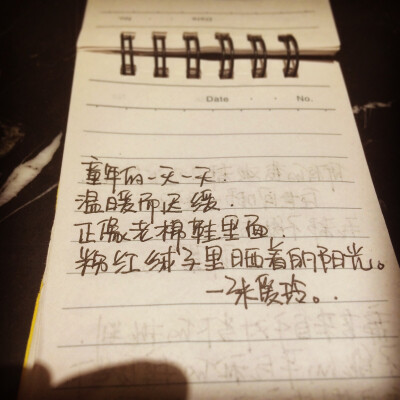 Date No.
童年的一天一天.
温暖而迟缓.
正像老棉鞋里面.
粉红绒子里晒着的阳光。
—张爱玲。.